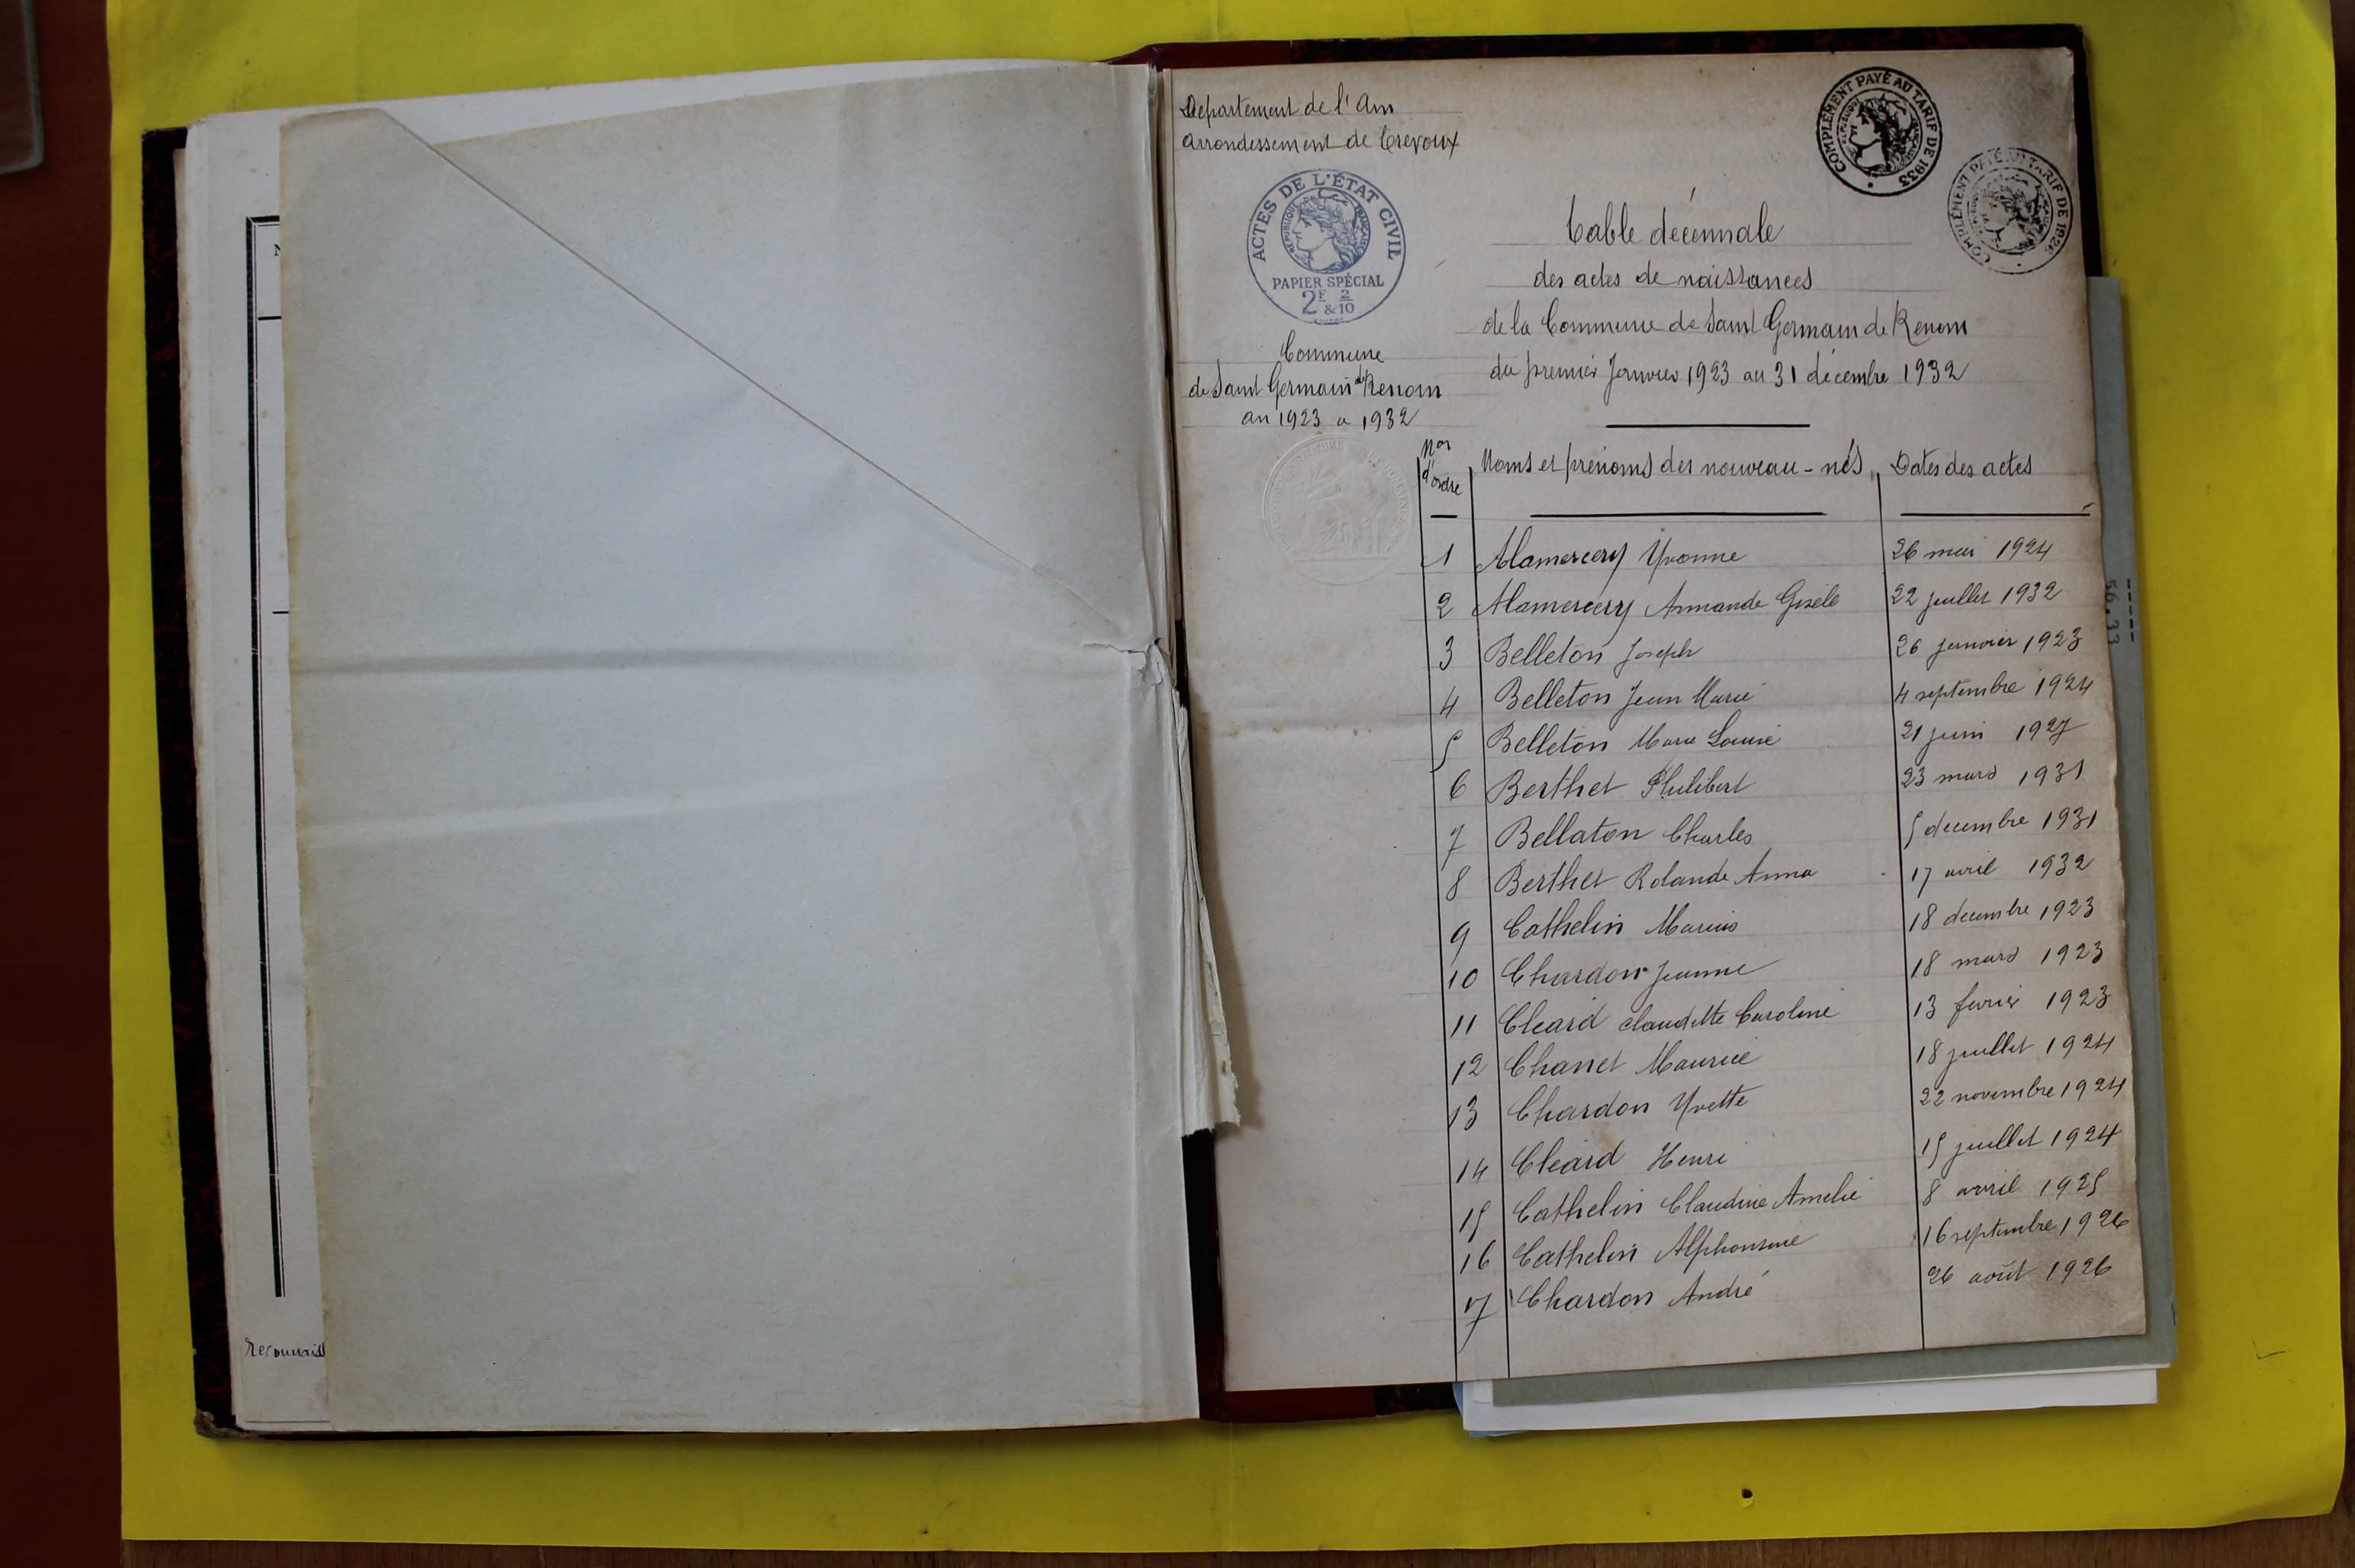 Departement de l'Ain
arrondissement de Trevoux
COMPLÉMENT PAYÉ AU TARIF DE 1933
COMPLÉMENT PAYÉ AU TARIF DE 192
ACTES DE L'ÉTAT CIVIL
RÉPUBLIQUE FRANÇAISE
PAPIER SPÉCIAL
2F & 2/10
Commune
de Saint Germain de Renom
an 1923 a 1932
Table décennale
des actes de naissances
de la Commune de Saint Germain de Renom
du premier Janvier 1923 au 31 décembre 1932
Nos d'ordre Noms et prénoms des nouveau-nés Dates des actes
1 Alamercery Yvonne 26 mai 1924
2 Alamercery Armande Gisèle 22 juillet 1932
3 Belleton Joseph 26 janvier 1923
4 Belleton Jean Marie 4 septembre 1924
5 Belleton Marie Louise 21 juin 1927
6 Berthet Philibert 23 mars 1931
7 Bellaton Charles 5 decembre 1931
8 Berthet Rolande Anna 17 avril 1932
9 Cathelin Marius 18 decembre 1923
10 Chardon Jeanne 18 mars 1923
11 Cléard Claudette Caroline 13 fevrier 1923
12 Chanet Maurice 18 juillet 1924
13 Chardon Yvette 22 novembre 1924
14 Cléard Henri 15 juillet 1924
15 Cathelin Claudine Amelie 8 avril 1925
16 Cathelin Alphonsine 16 septembre 1926
17 Chardon André 26 août 1926
56.33